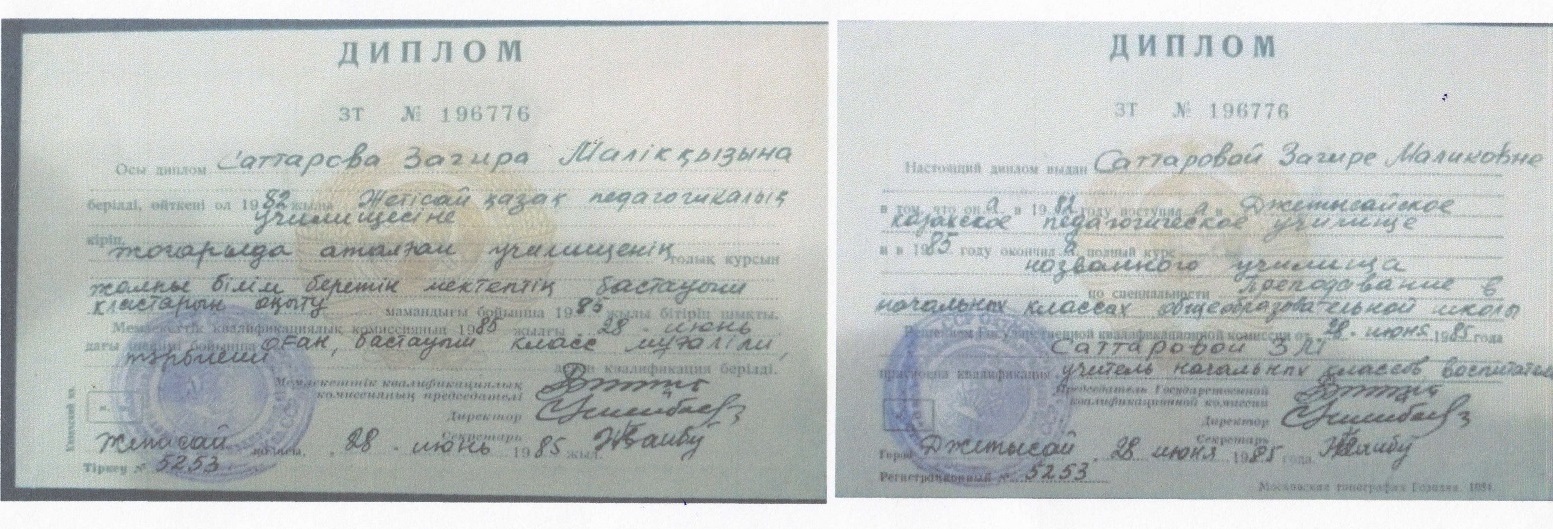 ДИПЛОМ
ЗТ № 196776
Осы диплом Саттарова Загира Маликқызына
берілді, өйткені ол 1982 жылы Жетісай қазақ педагогикалық
училищесіне
кіріп,
жоғарыда аталған училищенің толық курсын
жалпы білім беретін мектептің бастауыш
кластарын оқыту мамандығы бойынша 1985 жылы бітіріп шықты.
Мемлекеттік квалификациялық комиссияның 1985 жылғы 28 - июнь
дағы шешімі бойынша оған, бастауыш класс мұғалімі,
тәрбиеші
деген квалификация берілді.
Мемлекеттік квалификациялық
комиссияның председателі
Директор
Секретарь
Жетісай қаласы, 28 - июнь 1985 жыл.
Тіркеу № 5253
ДИПЛОМ
ЗТ № 196776
Настоящий диплом выдан Саттаровой Загире Маликовне
в том, что она в 1982 году поступила в Джетысайское
казахское педагогическое училище
и в 1985 году окончила полный курс
названного училища
по специальности преподование в
начальных классах общеобразовательной школы
Решением Государственной квалификационной комиссии от 28 - июня 1985 года
Саттаровой З М
присвоена квалификация учитель начальных классов воспитатель
Председатель Государственной
квалификационной комиссии
Директор
Секретарь
Город Джетысай 28 июня 1985 года
Регистрационный № 5253
Московская типография Гознака. 1981.